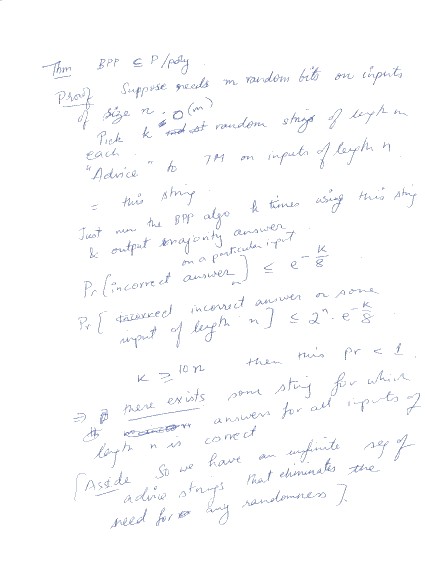 Thm BPP ⊆ P/poly.
Proof Suppose needs m random bits on inputs
of size n. O(m)
Pick k random strings of length m
each.
"Advice" to TM on inputs of length n
= this string.
Just run the BPP algo k times using this string
& output majority answer
on a particular input
Pr [incorrect answer] ≤ e^{-k/8}
Pr [ incorrect answer on some
input of length n ] ≤ 2^n · e^{-k/8}
K ≥ 10n then this pr < 1.
⇒ there exists some string for which
answers for all inputs of
length n is correct
[Asside So we have an infinite seq of
advice strings that eliminates the
need for any randomness].